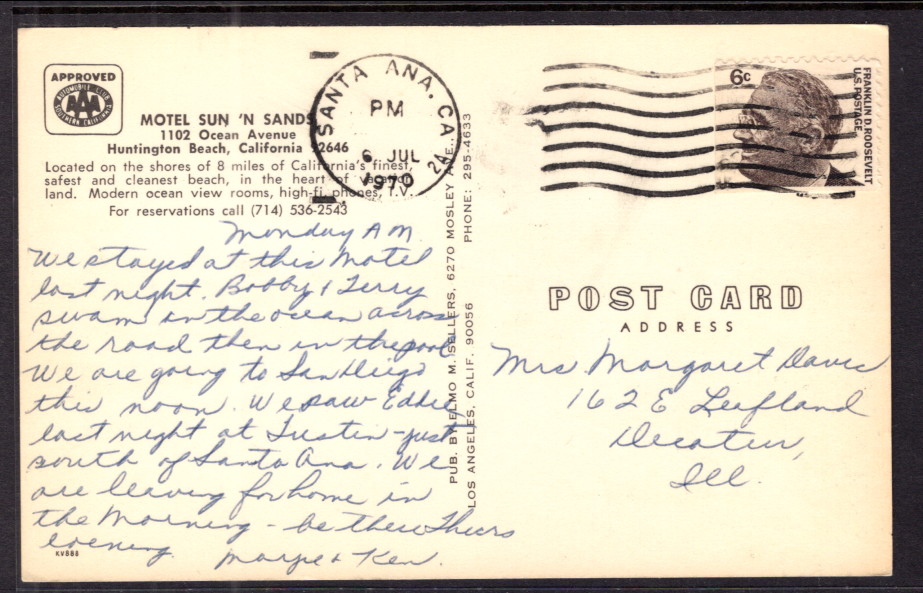 APPROVED
AUTOMOBILE CLUB
AAA
SOUTHERN CALIFORNIA
MOTEL SUN 'N SANDS
1102 Ocean Avenue
Huntington Beach, California 92646
Located on the shores of 8 miles of California's finest,
safest and cleanest beach, in the heart of vacation
land. Modern ocean view rooms, high-fi, phones, T.V.
For reservations call (714) 536-2543
Monday AM
We stayed at this Motel
last night. Bobby & Terry
swam in the ocean across
the road then in the pool
We are going to San Diego
this noon. We saw Eddie
last night at Tustin - just
south of Santa Ana. We
are leaving for home in
the Morning - be there Thurs
evening.
Marge & Ken.
KV888
PUB. BY ELMO M. SELLERS, 6270 MOSLEY AVE.,
LOS ANGELES, CALIF. 90056 PHONE: 295-4633
SANTA ANA, CA
PM
6 JUL
1970
6c
FRANKLIN D. ROOSEVELT
U.S. POSTAGE
POST CARD
ADDRESS
Mrs Margaret Davis
162 E Leafland
Decatur,
Ill.